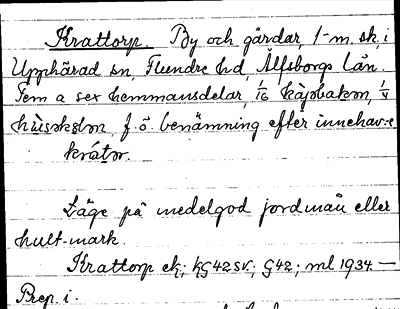 Krattorp. By och gårdar, 1-m. sk. i
Upphärad sn, Flundre hd, Älfsborgs län.
Fem a sex hemmansdelar, 1/16 1/4
f. ö. benämning efter innehav-e
Läge på medelgod jordmån eller
hult-mark.
Krattorp ek; KG42SV.; G42; ml 1934. —
Prep. i.